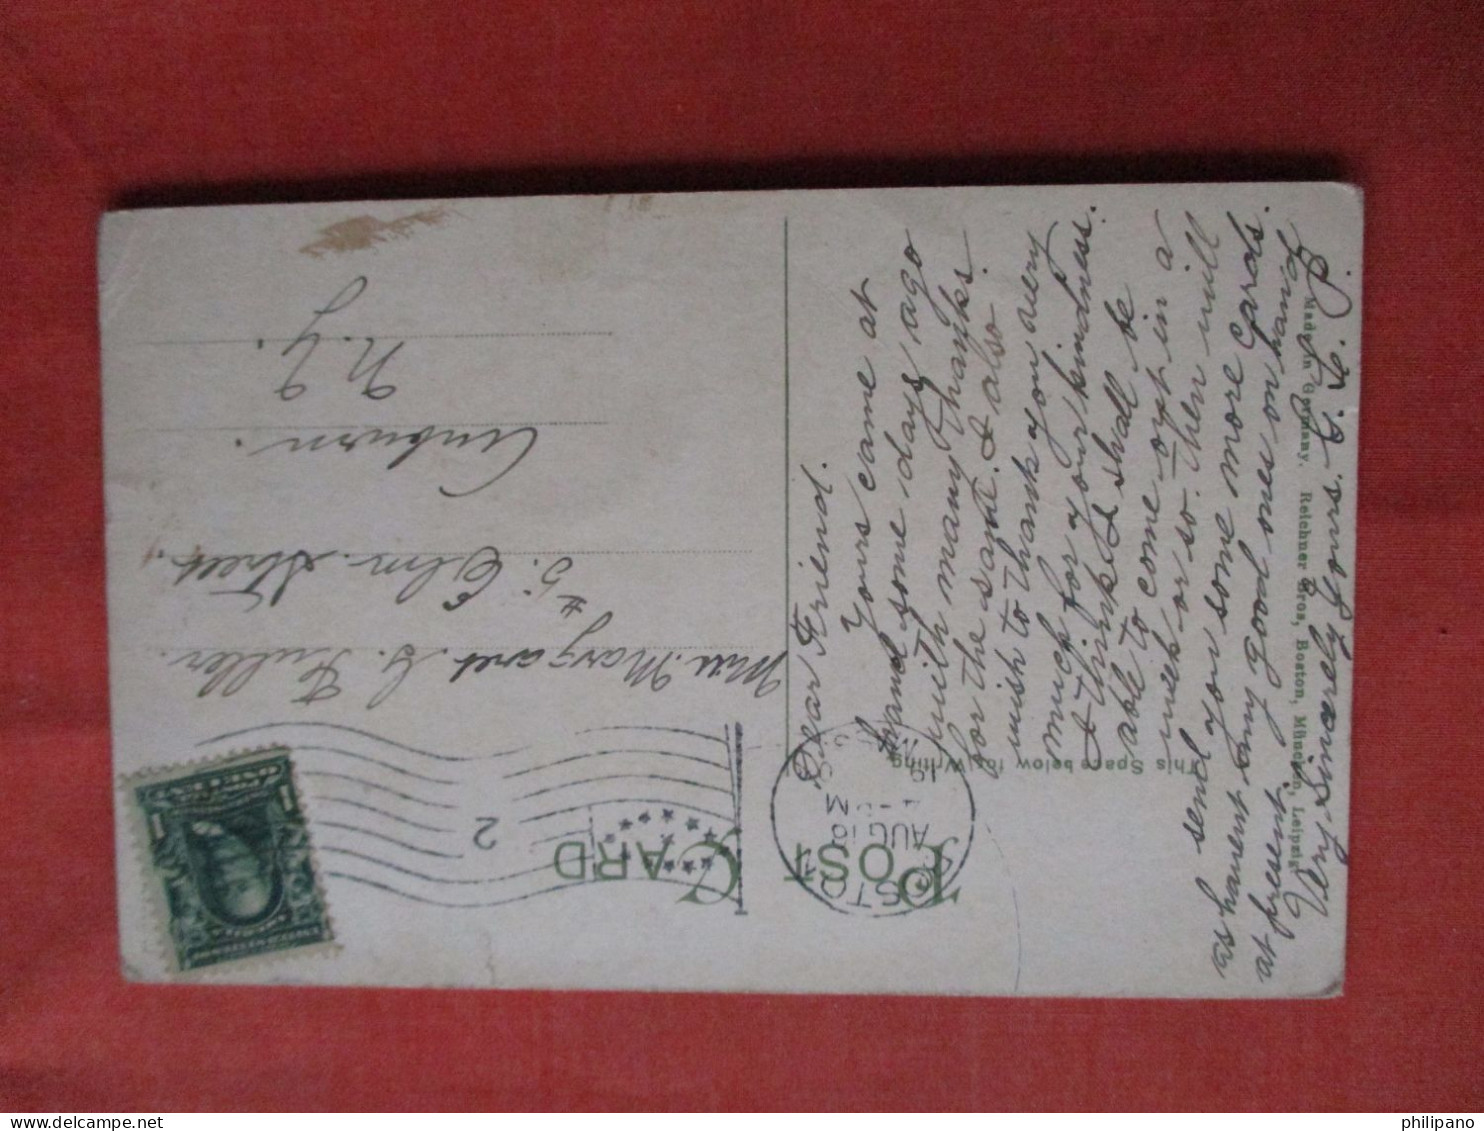 POST CARD
This Space below for Writing
Dear Friend.
Yours came at
hand some days ago
with many thanks
for the same. I also
wish to thank you very
much for your kindness.
I think I shall be
able to come out in a
week or so. Then will
send you some more cards.
as havent any good ones on hand
at present.
Very Sincerely Yours.
Made in Germany. Reichner Bros, Boston, München, Leipzig
AUG 18
M
2
Miss. Margaret G. Fuller.
#5. Elm. Street,
Auburn.
N. Y.
philipano